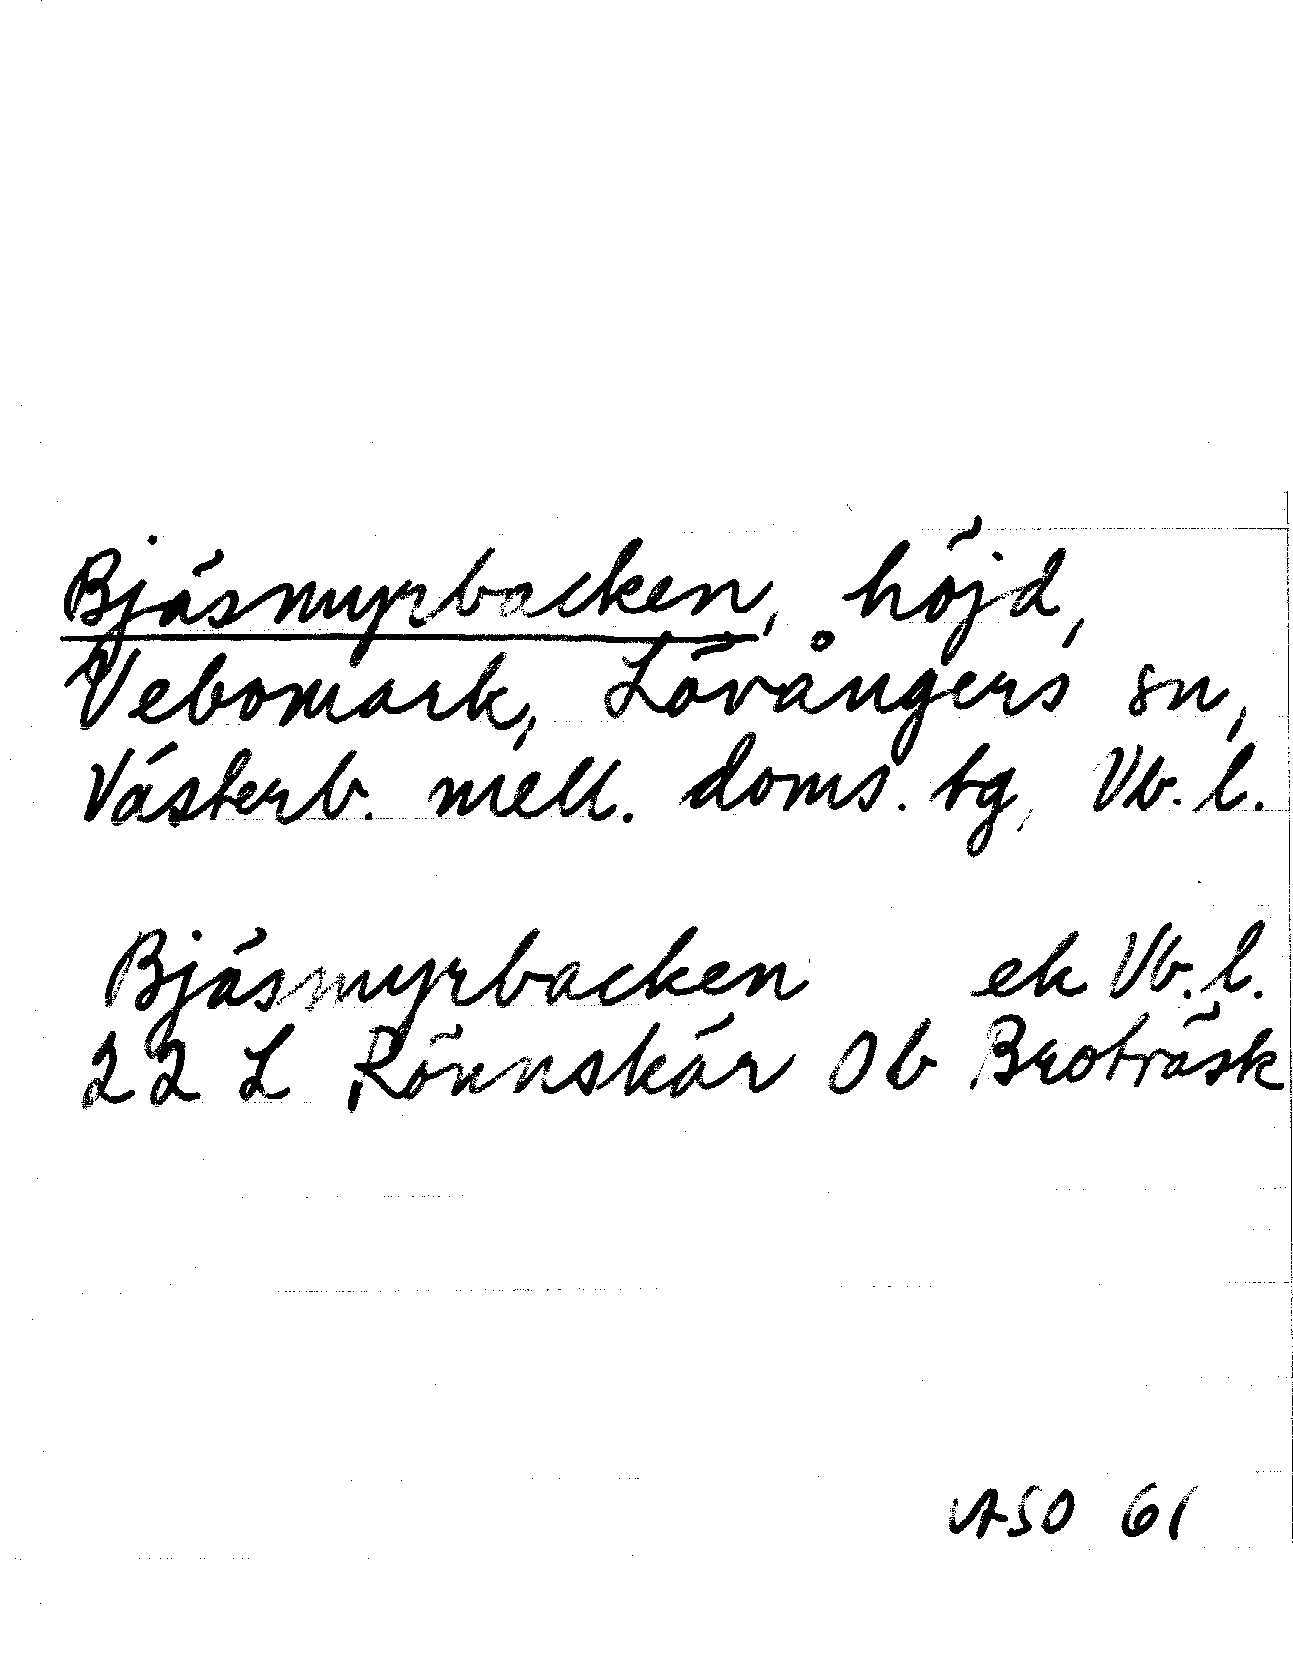 Bjäsmyrbacken, höjd,
Vebomark, Lövångers sn,
Västerb. mell. doms. tg, Vb. l.
Bjäsmyrbacken ek Vb. l.
22 L Rönnskär Ob Broträsk
ASO 61